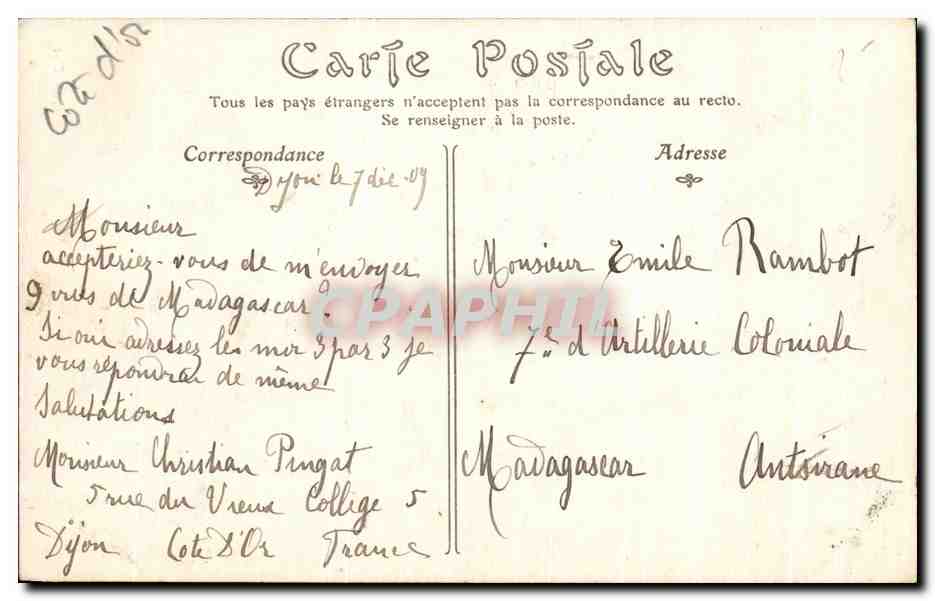 Côte d'or
Carte Postale
Tous les pays étrangers n'acceptent pas la correspondance au recto.
Se renseigner à la poste.
Correspondance
Dijon le 7 déc. 09
Monsieur
accepteriez-vous de m'envoyer
9 vues de Madagascar?
Si oui adressez les moi 3 par 3 je
vous répondrai de même
Salutations
Monsieur Christian Pingat
5 rue du Vieux Collège 5
Dijon Cote D'Or France
Adresse
Monsieur Emile Rambot
7e d'Artillerie Coloniale
Madagascar Antsirane
CPAPHIL